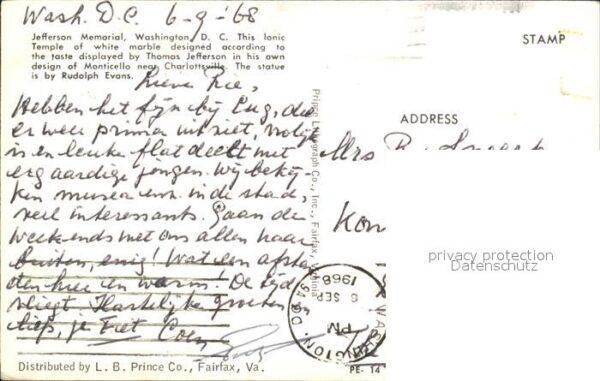 Wash. D.C. 6-9-'68
Jefferson Memorial, Washington, D. C. This Ionic
Temple of white marble designed according to
the taste displayed by Thomas Jefferson in his own
design of Monticello near Charlottsville. The statue
is by Rudolph Evans.
Lieve Rie,
Hebben het fijn bij Eug, die
er weer prima uitziet, vrolijk
is en leuke flat deelt met
erg aardige jongen. Wij bekij-
ken musea enz. in de stad,
veel interessants. Gaan de
weekends met ons allen naar
buiten, enig! Wat een afstan-
den hier en warm! De tijd
vliegt. Hartelijke groeten
liefs, je Fiet Coen
Prince Lithograph Co., Inc., Fairfax, Virginia
STAMP
ADDRESS
Mrs
Kon
privacy protection
Datenschutz
WASHINGTON, D.C.
PM
6 SEP
1968
Distributed by L. B. Prince Co., Fairfax, Va.
PE- 14